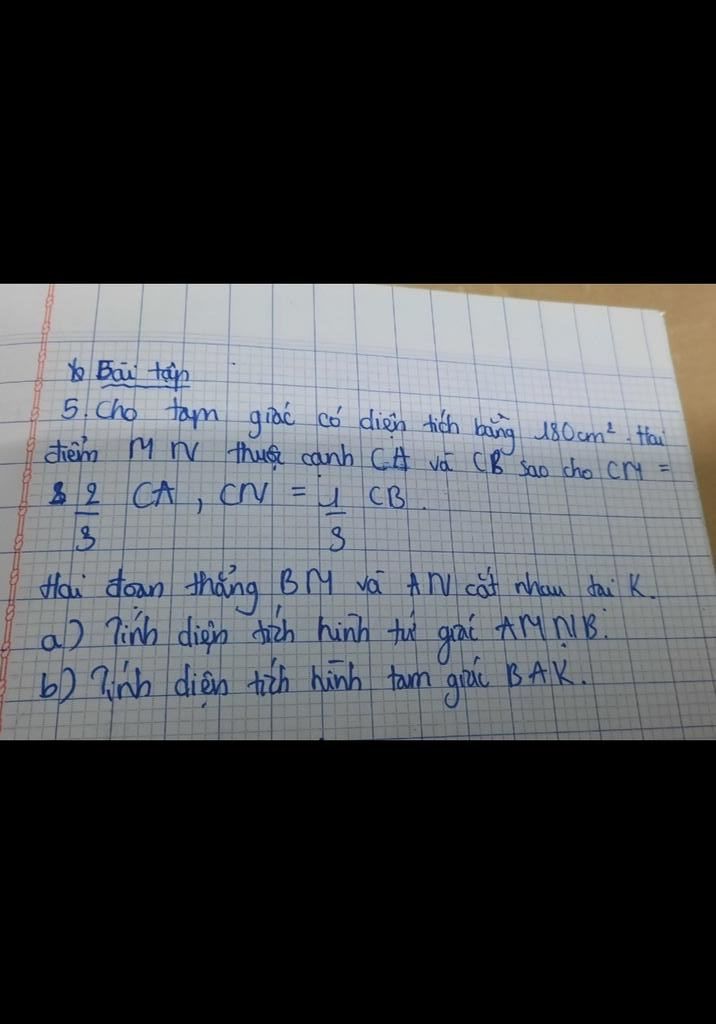 Bài tập
5. Cho tam giác có diện tích bằng 180cm². Hai
điểm M N thuộc cạnh CA và CB sao cho CM =
2/3 CA, CN = 1/3 CB.
Hai đoạn thẳng BM và AN cắt nhau tai K.
a) Tính diện tích hình tứ giác AMNB.
b) Tính diện tích hình tam giác BAK.